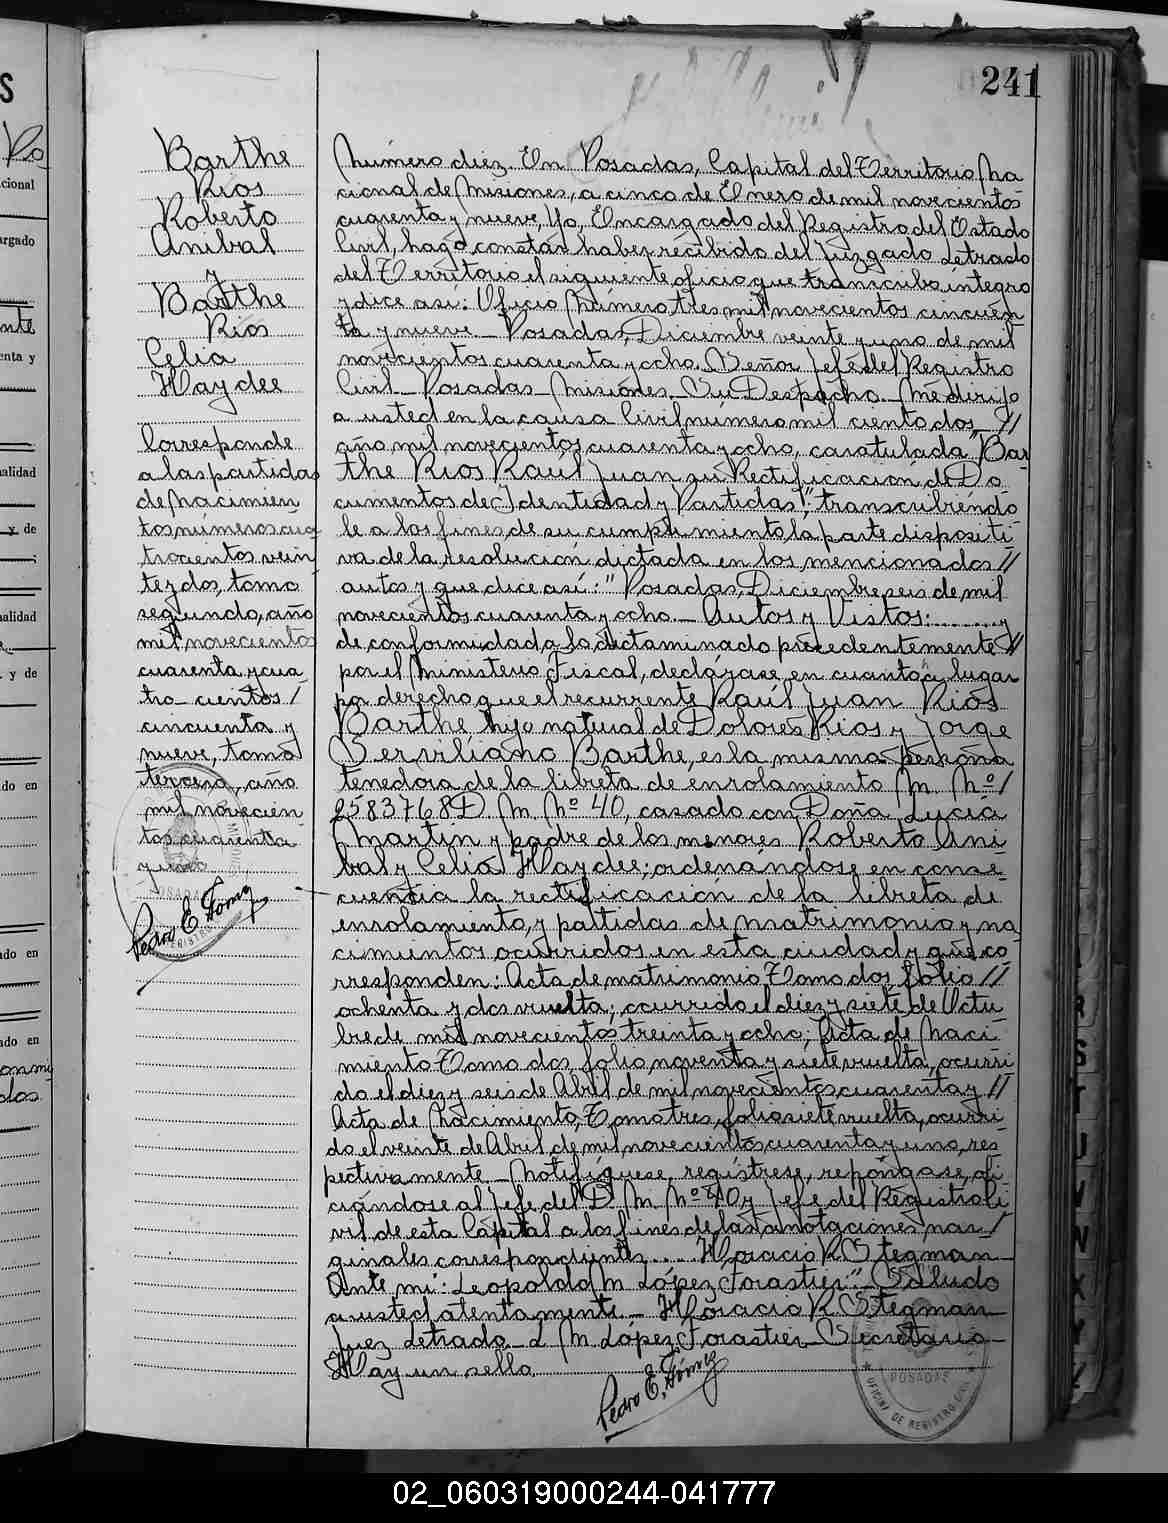 241
Barthe
Rios
Roberto
Anibal
y
Barthe
Rios
Celia
Haydee
Corresponde
a las partidas
de nacimien
tos números cua
trocientos vein
te y dos, tomo
segundo, año
mil novecientos
cuarenta y cua
tro cientos /
cincuenta y
nueve, tomo
tercero, año
mil novecien
tos cuarenta
y uno
Pedro E. Gómez
Número diez. En Posadas, Capital del Territorio Na
cional de Misiones, a cinco de Enero de mil novecientos
cuarenta y nueve, Yo, Encargado del Registro del Estado
Civil, hago constar haber recibido del Juzgado Letrado
del Territorio el siguiente oficio que transcribo íntegro
y dice así: Oficio Número tres mil novecientos cincuen
ta y nueve – Posadas, Diciembre veinte y uno de mil
novecientos cuarenta y ocho. Señor Jefe del Registro
Civil – Posadas – Misiones. Su Despacho. – Me dirijo
a usted en la causa Civil número mil ciento dos – //
año mil novecientos cuarenta y ocho, caratulada "Bar
the Rios Raúl Juan su Rectificación de Do
cumentos de Identidad y Partidas", transcribiéndo
le a los fines de su cumplimiento la parte dispositi
va de la resolución dictada en los mencionados //
autos y que dice así: "Posadas, Diciembre seis de mil
novecientos cuarenta y ocho. – Autos y Vistos: ........ y
de conformidad a lo dictaminado precedentemente //
por el Ministerio Fiscal, declárase, en cuanto a lugar
por derecho que el recurrente Raúl Juan Rios
Barthe hijo natural de Dolores Rios y Jorge
Serviliano Barthe, es la misma persona
tenedora de la libreta de enrolamiento M. Nº /
2583768 D. M. Nº 40, casado con Doña Lucia
Martin y padre de los menores Roberto Ani
bal y Celia Haydee; ordenándose en conse
cuencia la rectificación de la libreta de
enrolamiento, y partidas de matrimonio y na
cimientos ocurridos en esta ciudad y que co
rresponden: Acta de matrimonio Tomo dos folio //
ochenta y dos vuelta; ocurrido el diez y siete de Octu
bre de mil novecientos treinta y ocho; Acta de Naci
miento Tomo dos, folio noventa y siete vuelta, ocurri
do el diez y seis de Abril de mil novecientos cuarenta y //
Acta de Nacimiento, Tomo tres, folio siete vuelta, ocurri
do el veinte de Abril de mil novecientos cuarenta y uno, res
pectivamente – Notifíquese, regístrese, repóngase, ofi
ciándose al Jefe del D. M. Nº 40 y Jefe del Registro Ci
vil de esta Capital a los fines de las anotaciones mar /
ginales correspondientes.... Horacio R. Stegman –
Ante mi: Leopoldo M. López Forastier" – Saludo
a usted atentamente. – Horacio R. Stegman –
Juez Letrado – L. M. López Forastier – Secretario –
Hay un sello
Pedro E. Gómez
POSADAS
OFICINA DE REGISTRO CIVIL
02_060319000244-041777